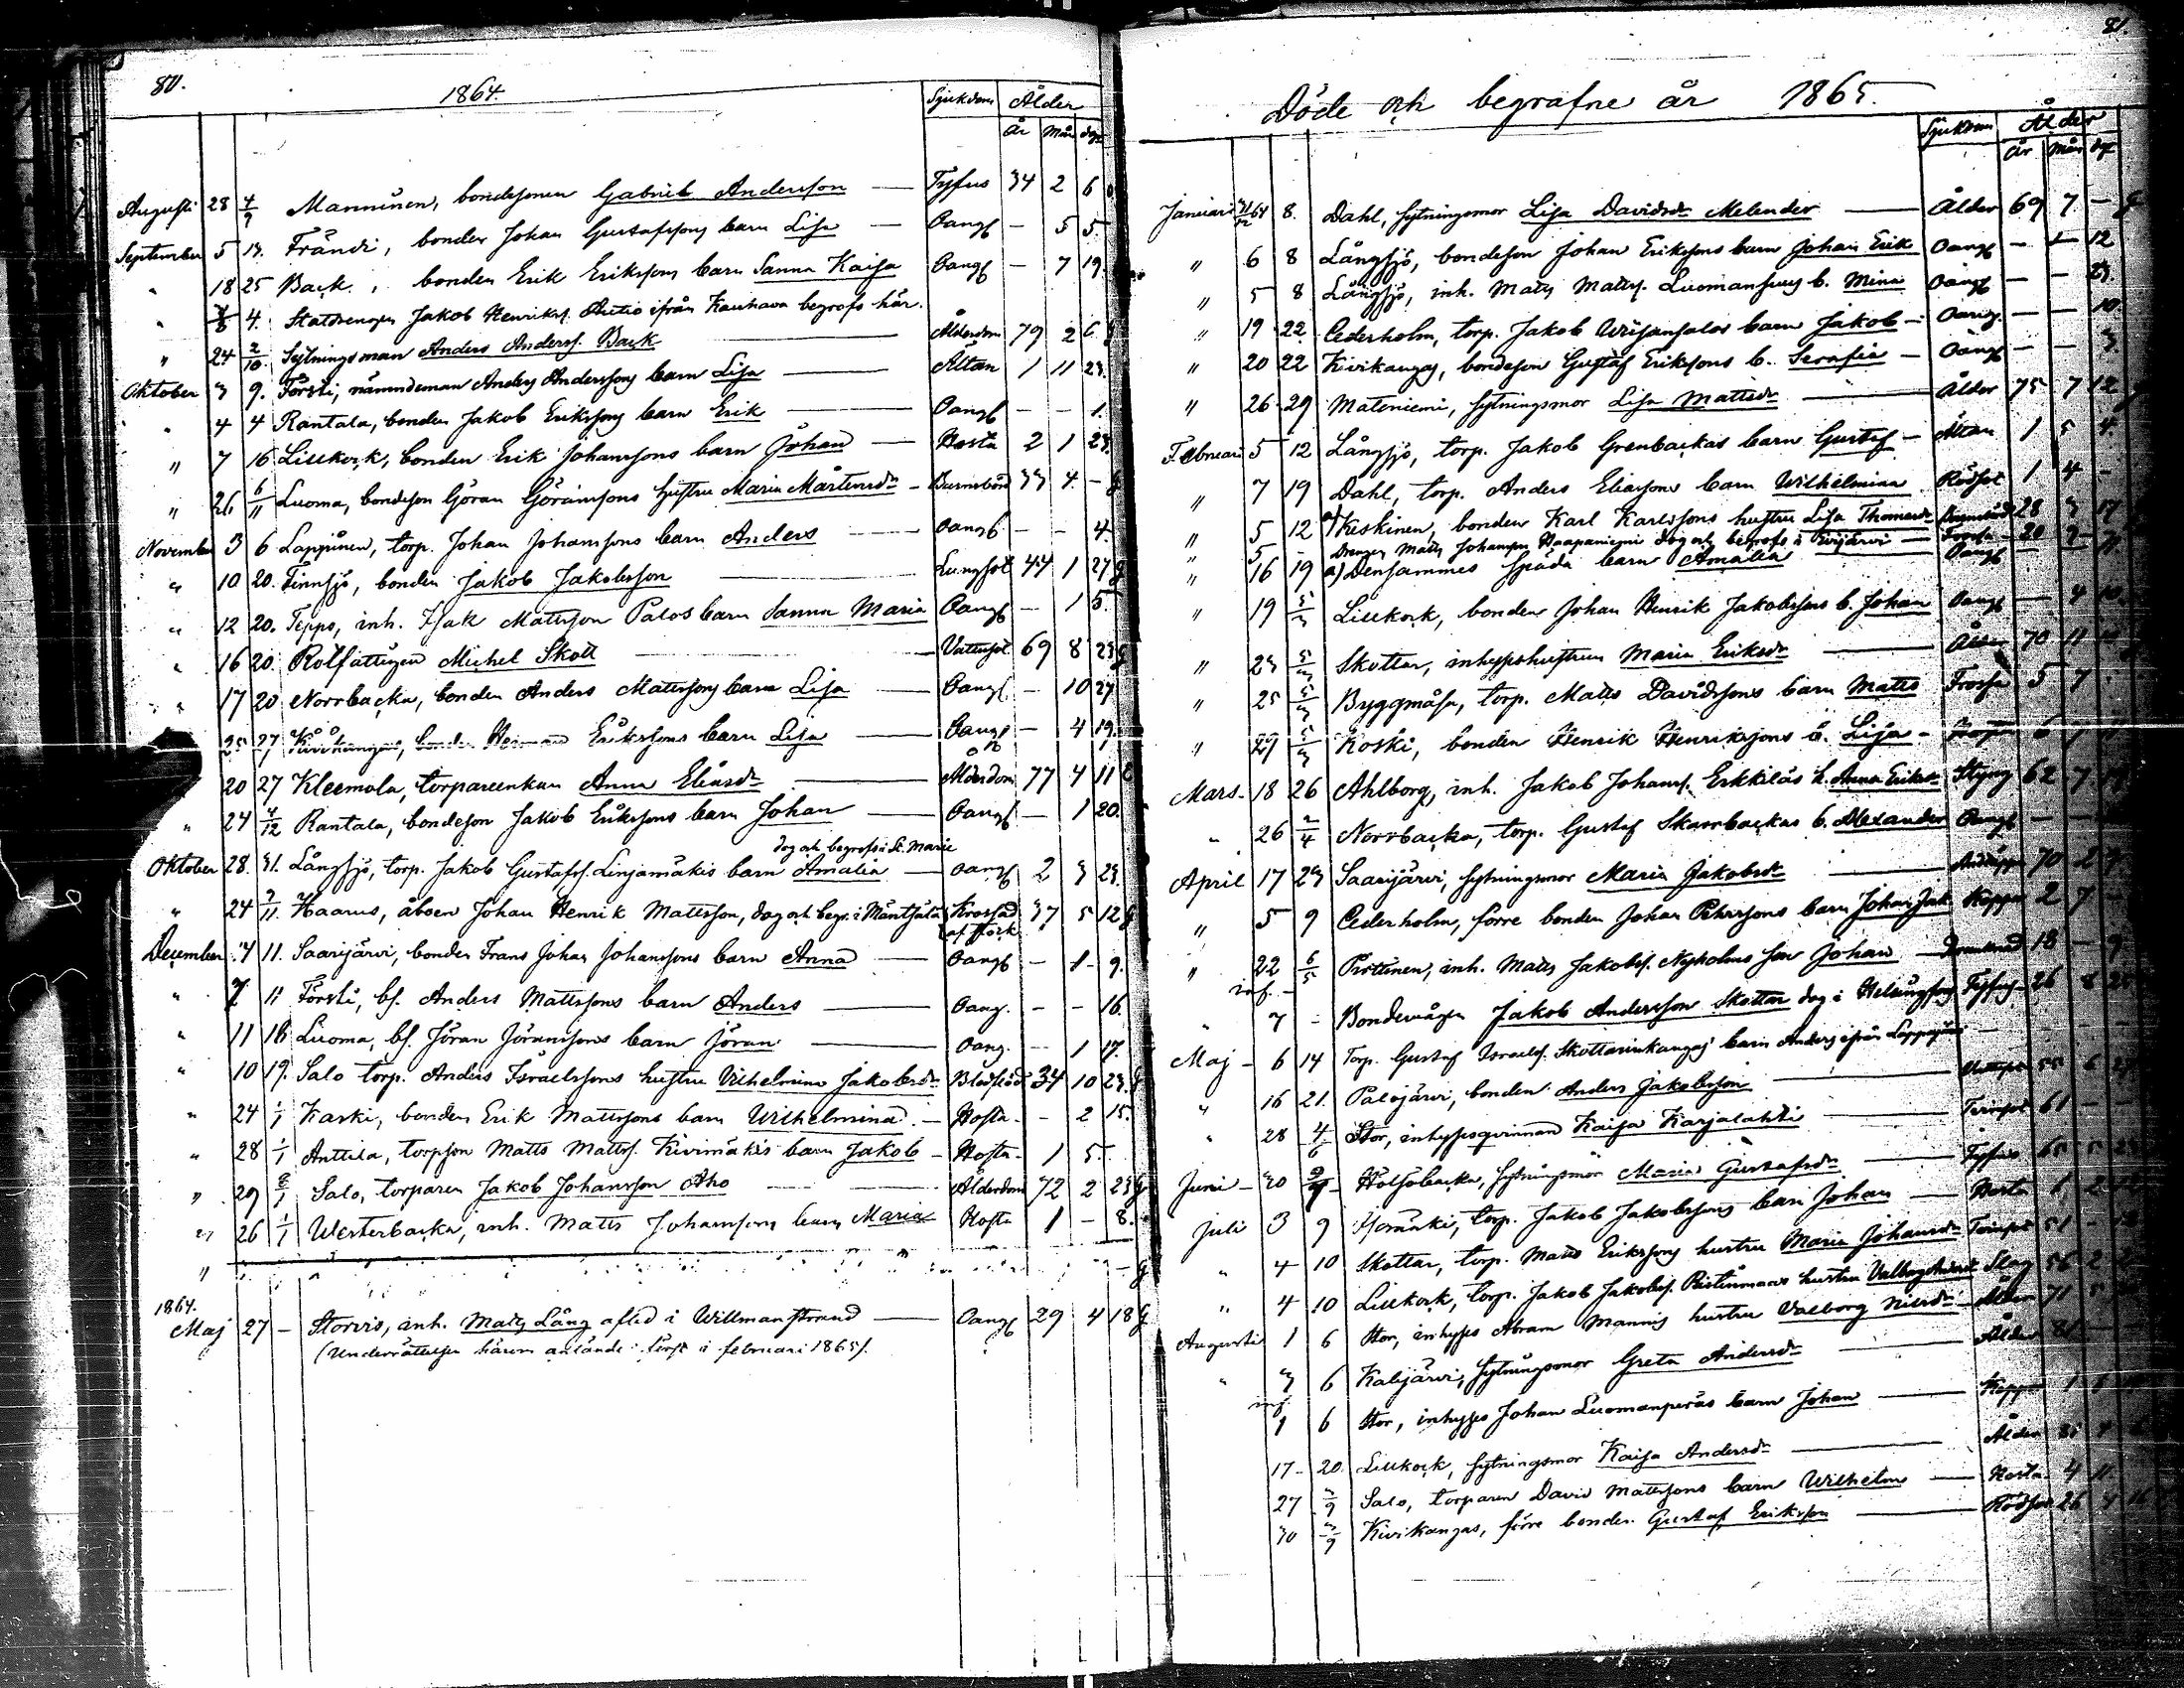 80.
1864.
Sjukdom Ålder
år Mån dag
Augusti 28 4/9 Manninen, bondesonen Gabriel Andersson — Tyfus 34 2 6
September 5 11. Frändi, bonden Johan Gustafssons barn Lisa — Oangf — 5 5.
" 18 25 Back, bonden Erik Erikssons barn Sanna Kaisa Oangf — 7 19.
" 4. Jakob Henrikss. ifrån Kauhava begrofs här.
" 24 2/10. Sytningsman Anders Anderss. Back — Ålderdom 79 2 6 g
Oktober 3 9. Försti, nämndeman Anders Anderssons barn Lisa — Altan 1 11 23.
" 4 4 Rantala, bonden Jakob Erikssons barn Erik — Oangf — — 1.
" 7 16 Lillkock, bonden Erik Johanssons barn Johan — Hosta 2 1 23.
" 26 6/11 Luoma, bondeson Göran Göranssons hustru Maria Mårtensdr — Barnsbörd 33 4 — g
November 3 6 Lappinen, torp. Johan Johanssons barn Anders — Oangf. — — 4.
" 10 20. Finnsjö, bonden Jakob Jakobsson — Lungsot 44 1 27 g
" 12 20. Teppo, inh. Isak Mattsson Palos barn Sanna Maria Oangf — 1 5.
" 16 20. Rotfattigen Michel Skott — Vattusot 69 8 23 g
" 17 20 Norrbacka, bonden Anders Mattssons barn Lisa — Oangf. — 10 27
25 27 Kivikangas, bonden Herman Erikssons barn Lisa — Oangf — 4 19.
20 27 Kleemola, torpareenkan Anna Eliasdr — Ålderdom 77 4 11
" 24 4/12 Rantala, bondeson Jakob Erikssons barn Johan — Oangf — 1 20.
dog och begrofs i St. Marie
Oktober 28. 31. Långsjö, torp. Jakob Gustafss. Linjamäkis barn Amalia — Oangf 2 3 23.
" 24 7/11. Haarus, åboen Johan Henrik Mattsson, dog och begr. i Mäntsälä Krossad 37 5 12 g
af stock
December 4 11. Saarijärvi, bonden Frans Johan Johanssons barn Anna — Oangf — 1 9.
" 7 11 Försti, bs. Anders Mattssons barn Anders — Oang. — — 16.
" 11 18 Luoma, bs. Jöran Jöranssons barn Jöran — Oang. — 1 17.
" 10 19. Salo torp. Anders Israelssons hustru Vilhelmina Jakobsdr Blodflöd 34 10 23. g
" 24 1/1 Kaski, bonden Erik Mattssons barn Wilhelmina. — Hosta — 2 15.
" 28 1/1 Anttila, torpson Matts Mattss. Kivimäkis barn Jakob — Hosta 1 5.
" 29 8/1 Salo, torparen Jakob Johansson Aho — Ålderdom 72 2 23 g
" 26 1/1 Westerbacka, inh. Matts Johanssons barn Maria Hosta 1 — 8.
"
1864.
Maj 27 — Storvis, inh. Matts Lång afled i Willmanstrand — Oangf 29 4 18 g
(Underrättelsen härom anlände först i februari 1865).
81.
Döde och begrafne år 1865.
Sjukdom Ålder
år Mån dag
Januari 8. Dahl, sytningsmor Lisa Davidsdr Melender — Ålder 69 7 — g
" 6 8 Långsjö, bondeson Johan Erikssons barn Johan Erik Oangf — 1 12
" 5 8 Långsjö, inh. Matts Mattss. Luomansuus b. Mina Oangf — — 23.
" 19 22 Cederholm, torp. Jakob barn Jakob — Oang. — — 10.
" 20 22 Kivikangas, bondeson Gustaf Erikssons b. Serafia — Oangf — — 3.
" 26 29 Mateniemi, sytningsmor Lisa Mattsdr — Ålder 75 7 12
Februari 5 12 Långsjö, torp. Jakob Grenbackas barn Gustaf — Altan 1 5 4.
" 7 19 Dahl, torp. Anders Eliassons barn Wilhelmina Rödsot 1 4 —
" 5 12 Keskinen, bonden Karl Karlssons hustru Lisa Thomasdr Barnsbörd 28 3 17
" 5 — Drengen Matts Johansson Haapaniemi dog och begrofs i Evijärvi — 20
" 16 19 a) Densammes späda barn Amalia Oangf
" 19 5/3 Lillkock, bonden Johan Henrik Jakobssons b. Johan Oangf — 4 10
" 23 5/3 Skottar, inhyseshustrun Maria Eriksdr — Ålder 70 11
" 25 5/3 Byggmäsa, torp. Matts Davidssons barn Matts Frossa 5 7
" 27 5/3 Koski, bonden Henrik Henrikssons b. Lisa — 6
Mars 18 26 Ahlborg, inh. Jakob Johanss. Erkkiläs h. Anna Eriksdr Styng 62 7
" 26 2/4 Norrbacka, torp. Gustaf Skarrbackas b. Alexander Oangf — —
April 17 23 Saarijärvi, sytningsmor Maria Jakobsdr — 70 2
" 5 9 Cederholm, förre bonden Johan Petterssons barn Johan Jak Koppor 2 7 —
" 22 6/5 Pistinen, inh. Matts Jakobss. Nyholms son Johan — 18 — 9
inf.
" 7 — Bondemågen Jakob Andersson Skottar dog i Helsingfors Tyfus 26 8
Maj — 6 14 Torp. Gustaf Israelss. Skottarinkangas barn Anders ifrån Lappajärvi —
" 16 21. Palojärvi, bonden Anders Jakobsson — 55 6
" 28 4/6 Stor, inhysesqvinnan Kaisa Karjalahti — Tvinsot 61 —
Juni — 30 Hölsöbacka, sytningsmor Maria Gustafsdr — Tyfus 65 5
Juli 3 9 Homäki, torp. Jakob Jakobssons barn Johan — Hosta 1 2
" 4 10 Skottar, torp. Matts Erikssons hustru Maria Johansdr Tvinsot 51 —
" 4 10 Lillkock, torp. Jakob Jakobss. hustru Valborg Andersdr Slag 56 2
Augusti 1 6 Stor, inhyses Abram Mannis hustru Valborg Nilsdr — Ålder 71
" 3 6 Kalijärvi, sytningsmor Greta Andersdr — Ålder 81 —
inf.
1 6 Stor, inhyses Johan Luomanperäs barn Johan — Koppor 1
17 20. Lillkock, sytningsmor Kaisa Andersdr — Ålder 81 4
27 3/9 Salo, torparen David Mattssons barn Wilhelm — Hosta 4 11
30 3/9 Kivikangas, förre bonden Gustaf Eriksson — Rödsot 26 4